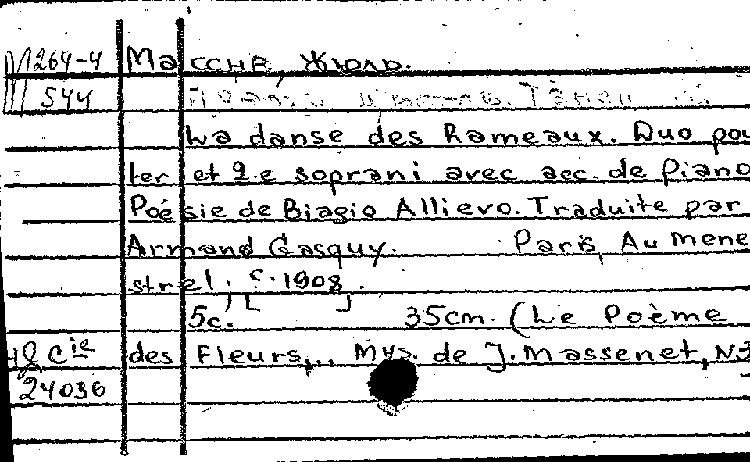 М 264-4 Массне, Жюль.
544
La danse des Rameaux. Duo pou
1er et 2e soprani avec acc. de piano
Poésie de Biagio Allievo. Traduite par
Armand Gasquy. Paris, Au Mene
strel, [c. 1908].
5c. 35cm. (Le Poème
H & Cie des Fleurs,.. Mus. de J. Massenet, N3
24036